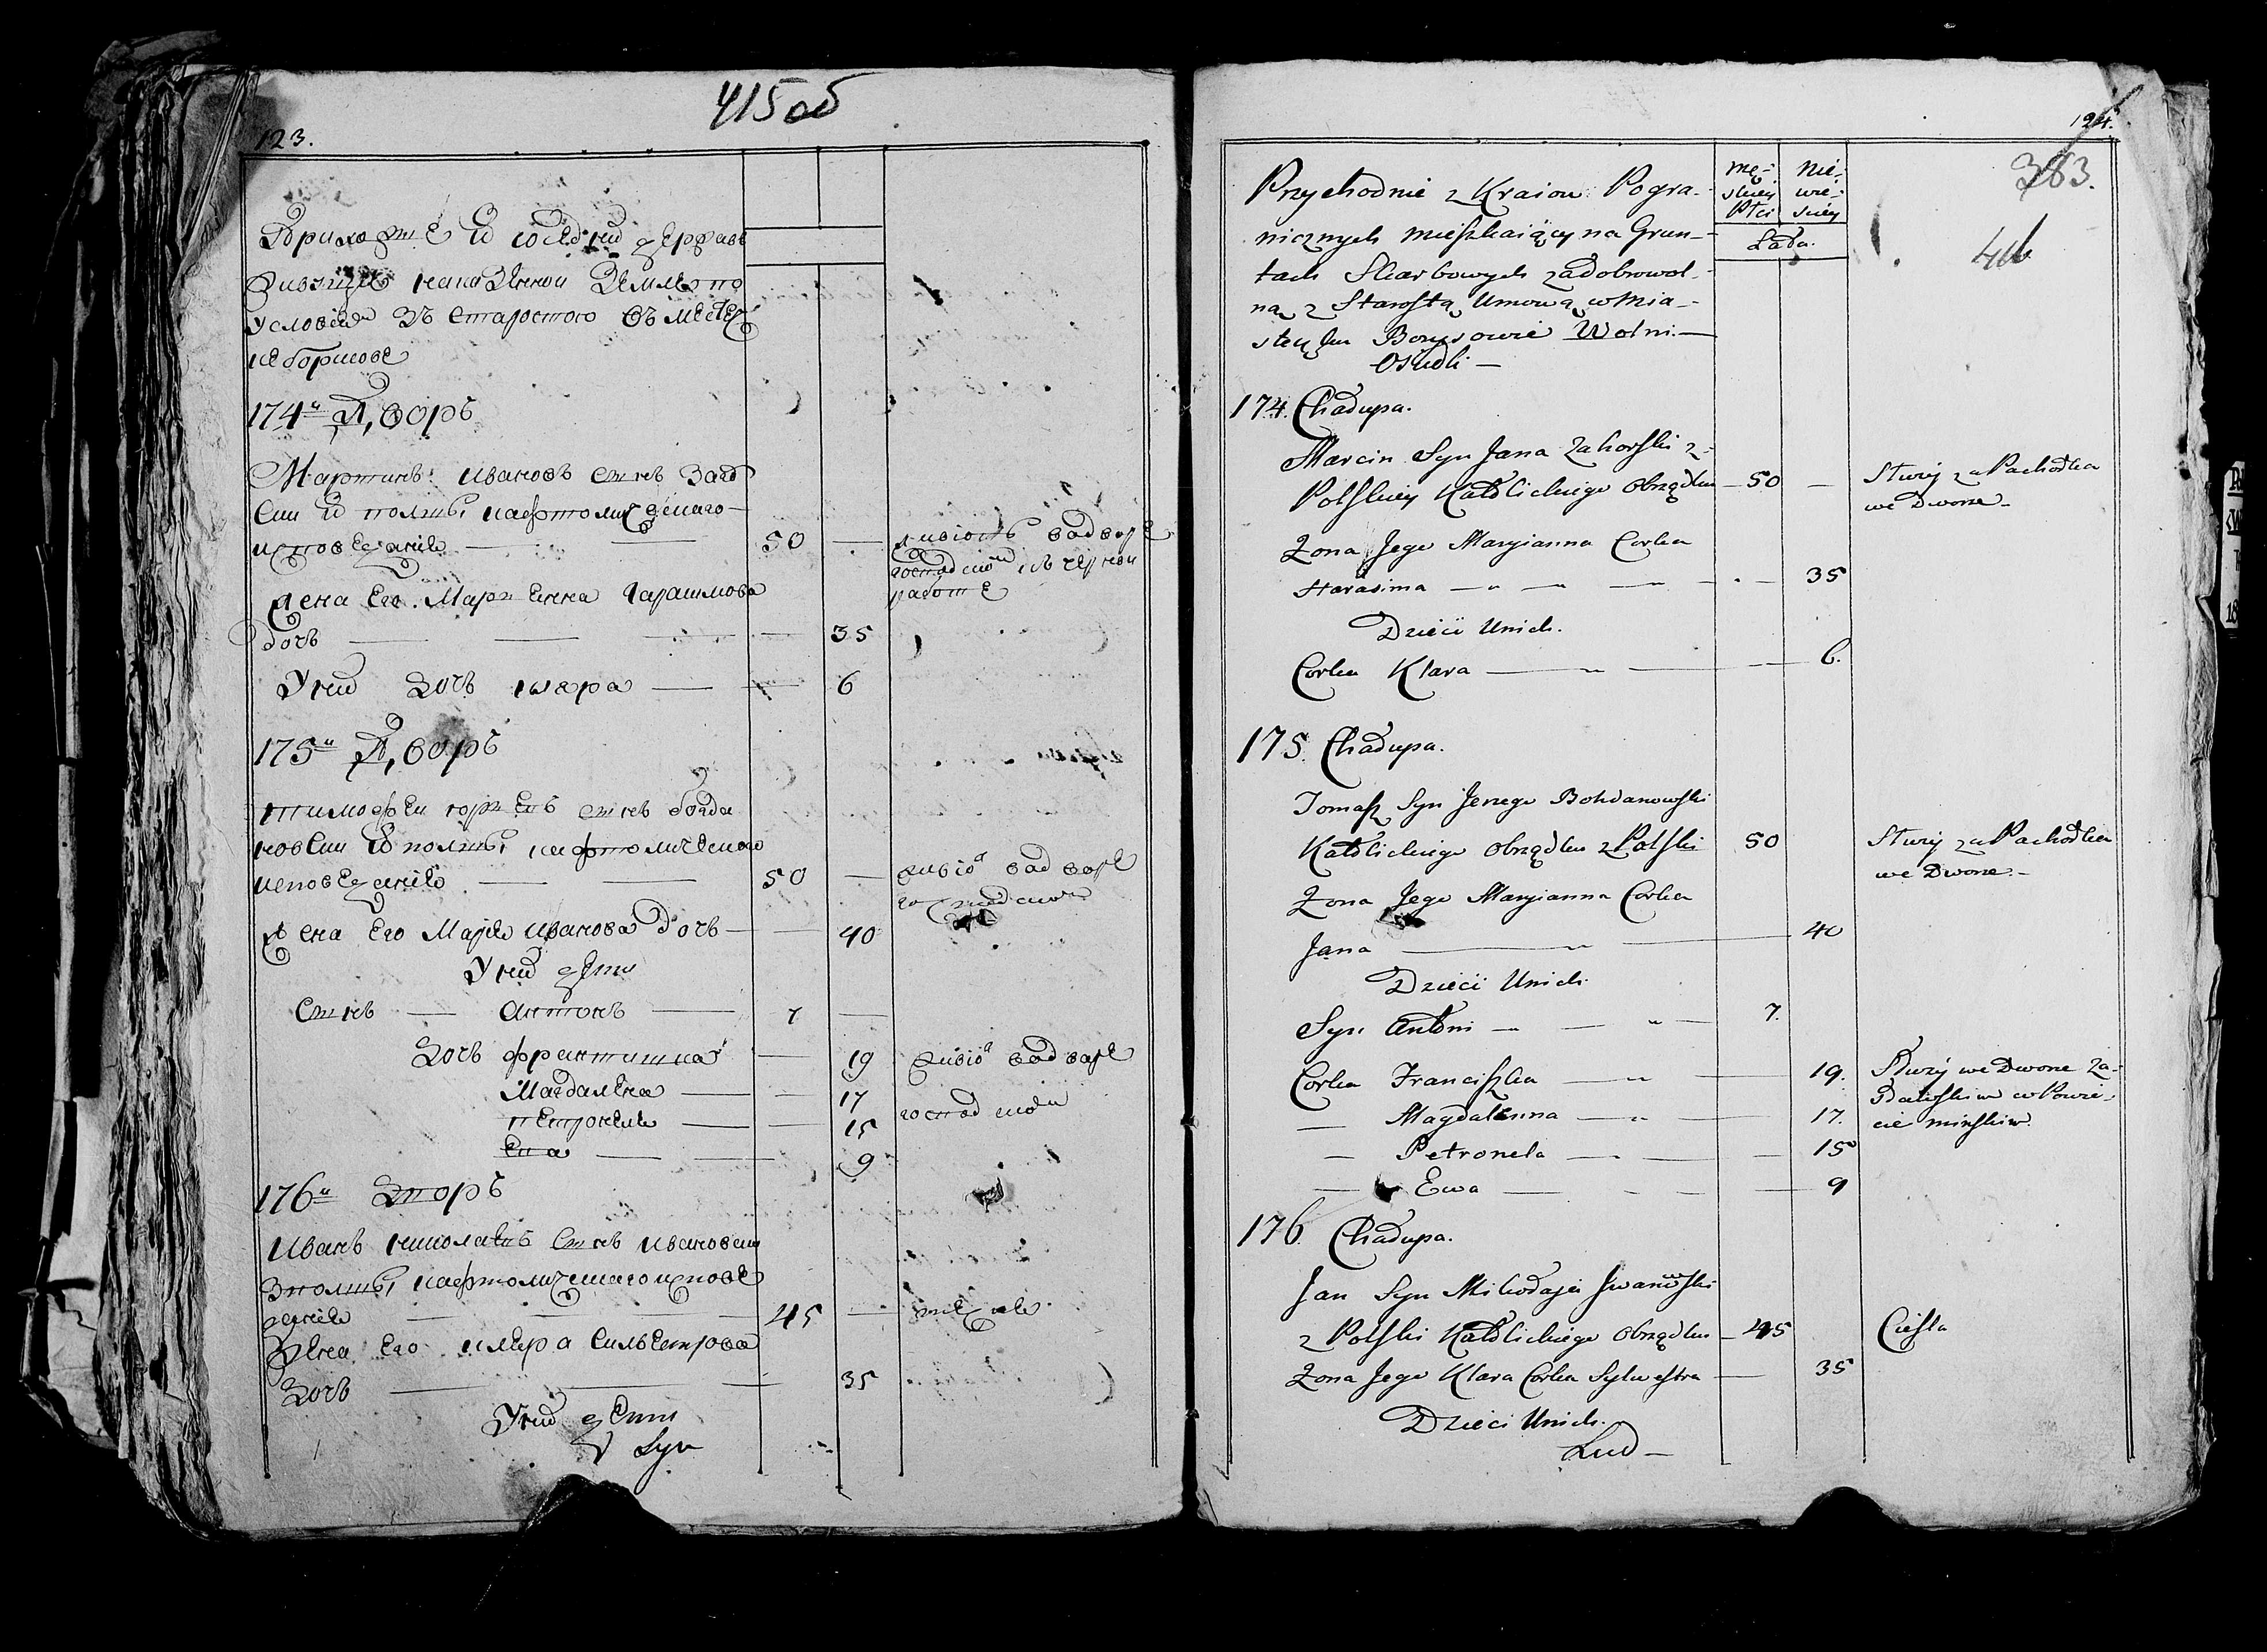 415 об
123.
Приход
живущие казенной земле по
условiям зъ старостою въ мест
ке борисове
174й Дворъ
Мартинъ Ивановъ сынъ
польши кафтолицкаго
исповеданiя — — 50 —
жена Его Марiенна Гарашимова
дочь — — — 35
У них дочь клара — — 6
175й Дворъ
тимофеи юрiевъ сынъ богда
новски польши кафтоличскаго
исповеданiя — — 50 —
жена Его Марiя иванова дочь — — 40
У них дети
сынъ — антонъ — 7 —
дочь францишка — 19
Магдалена — — 17
петронеля — — 15
Ева — — 9
176й Дворъ
Иванъ николаевъ сынъ ивановски
зполши кафтоличскаго испове
данiя — — 45 —
жена Его клара сильвестрова
дочь — — — 35
У них дети
Syn
124.
383.
Przychodnie z Kraiow Pogra-
nicznych mieszkaiący na Grun-
tach Skarbowych za dobrowol-
ną z Starostą Umową w Mia-
steczku Borysowie Wolni —
Osiedli —
mę-
skiey
Płci
nie-
wie-
skiey
Lata.
174. Chałupa.
Marcin Syn Jana Zahorski z-
Polskiey Katolickiego Obrządku — 50 — Służy za Pachołka
we Dworze —
Żona Jego Maryianna Corka
Harasima — — — — 35
Dzieci Unich.
Corka Klara — — — 6.
175. Chałupa.
Tomasz Syn Jerzego Bohdanowski
Katolickiego Obrządku z Polski 50 Służy za Pachołka
we Dworze. —
Żona Jego Maryianna Corka
Jana — — 40
Dzieci Unich.
Syn Antoni — — — 7.
Corka Franciszka — — 19. Służy we Dworze Za-
— Magdalenna — — 17. w Powie-
cie minskim.
— Petronela — — — 15
— Ewa — — — 9
176. Chałupa.
Jan Syn Mikołaja Jwanowski
z Polski Katolickiego Obrządku — 45 Cieśla
Żona Jego Klara Corka Sylwestra — 35
Dzieci Unich.
Lud —